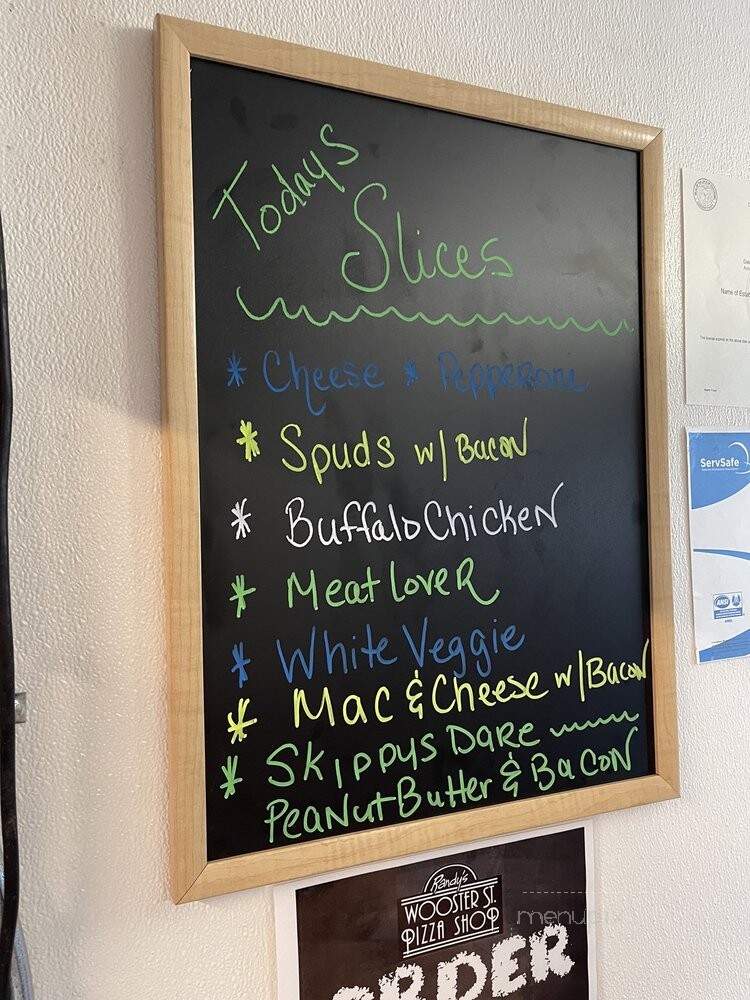 Todays
Slices
* Cheese * Pepperoni
* Spuds w/ Bacon
* Buffalo Chicken
* Meat Lover
* White Veggie
* Mac & Cheese w/ Bacon
* Skippys Dare
Peanut Butter & Bacon
Name of Estab
ServSafe
ANSI
Randy's
WOOSTER ST.
PIZZA SHOP
menupix
ORDER